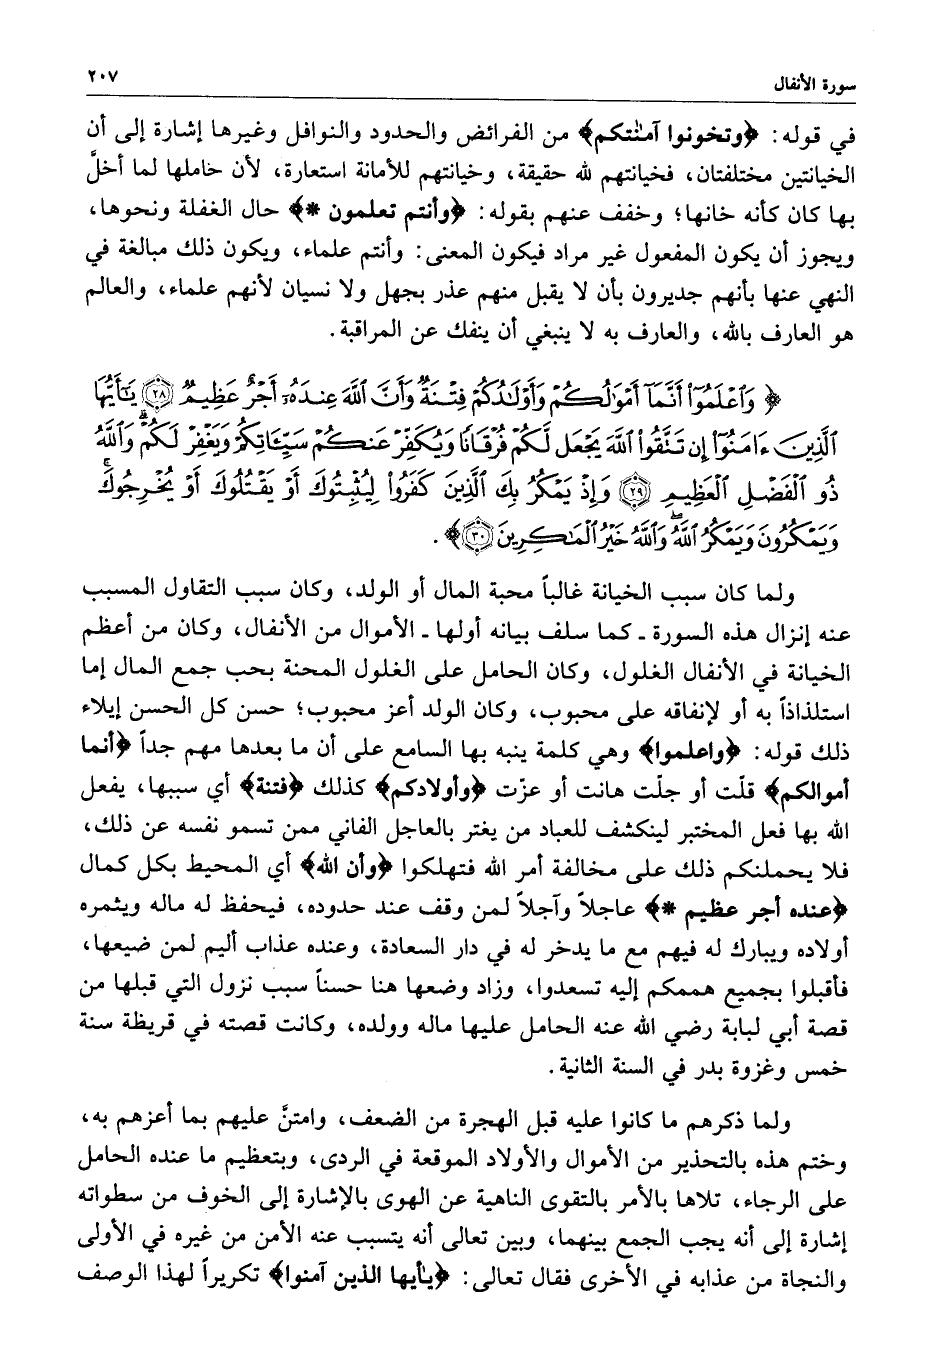 سورة الأنفال ٢٠٧
في قوله: ﴿وتخونوا آمنتكم﴾ من الفرائض والحدود والنوافل وغيرها إشارة إلى أن
الخيانتين مختلفتان، فخيانتهم لله حقيقة، وخيانتهم للأمانة استعارة، لأن حاملها لما أخلَّ
بها كان كأنه خانها؛ وخفف عنهم بقوله: ﴿وأنتم تعلمون *﴾ حال الغفلة ونحوها،
ويجوز أن يكون المفعول غير مراد فيكون المعنى: وأنتم علماء، ويكون ذلك مبالغة في
النهي عنها بأنهم جديرون بأن لا يقبل منهم عذر بجهل ولا نسيان لأنهم علماء، والعالم
هو العارف بالله، والعارف به لا ينبغي أن ينفك عن المراقبة.
﴿ وَٱعْلَمُوٓا۟ أَنَّمَآ أَمْوَٰلُكُمْ وَأَوْلَٰدُكُمْ فِتْنَةٌ وَأَنَّ ٱللَّهَ عِندَهُۥٓ أَجْرٌ عَظِيمٌ ﴿٢٨﴾ يَٰٓأَيُّهَا
ٱلَّذِينَ ءَامَنُوٓا۟ إِن تَتَّقُوا۟ ٱللَّهَ يَجْعَل لَّكُمْ فُرْقَانًا وَيُكَفِّرْ عَنكُمْ سَيِّـَٔاتِكُمْ وَيَغْفِرْ لَكُمْ ۗ وَٱللَّهُ
ذُو ٱلْفَضْلِ ٱلْعَظِيمِ ﴿٢٩﴾ وَإِذْ يَمْكُرُ بِكَ ٱلَّذِينَ كَفَرُوا۟ لِيُثْبِتُوكَ أَوْ يَقْتُلُوكَ أَوْ يُخْرِجُوكَ ۚ
وَيَمْكُرُونَ وَيَمْكُرُ ٱللَّهُ ۖ وَٱللَّهُ خَيْرُ ٱلْمَٰكِرِينَ ﴿٣٠﴾﴾.
ولما كان سبب الخيانة غالباً محبة المال أو الولد، وكان سبب التقاول المسبب
عنه إنزال هذه السورة ـ كما سلف بيانه أولها ـ الأموال من الأنفال، وكان من أعظم
الخيانة في الأنفال الغلول، وكان الحامل على الغلول المحنة بحب جمع المال إما
استلذاذاً به أو لإنفاقه على محبوب، وكان الولد أعز محبوب؛ حسن كل الحسن إيلاء
ذلك قوله: ﴿واعلموا﴾ وهي كلمة ينبه بها السامع على أن ما بعدها مهم جداً ﴿أنما
أموالكم﴾ قلّت أو جلّت هانت أو عزّت ﴿وأولادكم﴾ كذلك ﴿فتنة﴾ أي سببها، يفعل
الله بها فعل المختبر لينكشف للعباد من يغتر بالعاجل الفاني ممن تسمو نفسه عن ذلك،
فلا يحملنكم ذلك على مخالفة أمر الله فتهلكوا ﴿وأن الله﴾ أي المحيط بكل كمال
﴿عنده أجر عظيم *﴾ عاجلاً وآجلاً لمن وقف عند حدوده، فيحفظ له ماله ويثمره
أولاده ويبارك له فيهم مع ما يدخر له في دار السعادة، وعنده عذاب أليم لمن ضيعها،
فأقبلوا بجميع هممكم إليه تسعدوا، وزاد وضعها هنا حسناً سبب نزول التي قبلها من
قصة أبي لبابة رضي الله عنه الحامل عليها ماله وولده، وكانت قصته في قريظة سنة
خمس وغزوة بدر في السنة الثانية.
ولما ذكرهم ما كانوا عليه قبل الهجرة من الضعف، وامتنَّ عليهم بما أعزهم به،
وختم هذه بالتحذير من الأموال والأولاد الموقعة في الردى، وبتعظيم ما عنده الحامل
على الرجاء، تلاها بالأمر بالتقوى الناهية عن الهوى بالإشارة إلى الخوف من سطواته
إشارة إلى أنه يجب الجمع بينهما، وبين تعالى أنه يتسبب عنه الأمن من غيره في الأولى
والنجاة من عذابه في الأخرى فقال تعالى: ﴿يأيها الذين آمنوا﴾ تكريراً لهذا الوصف